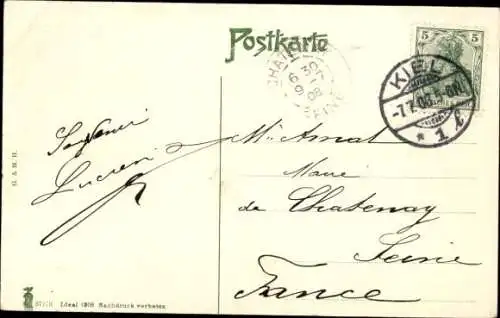 Postkarte
5 5
KIEL
-7.7.08.5-6N.
* 1 l
CHAT
6 30
9 -7
08
SEINE
Souvenir
Lucien
Mr Amat
Maire
de Chatenay
Seine
France
G. & M. H.
Ideal 1908 Nachdruck verboten